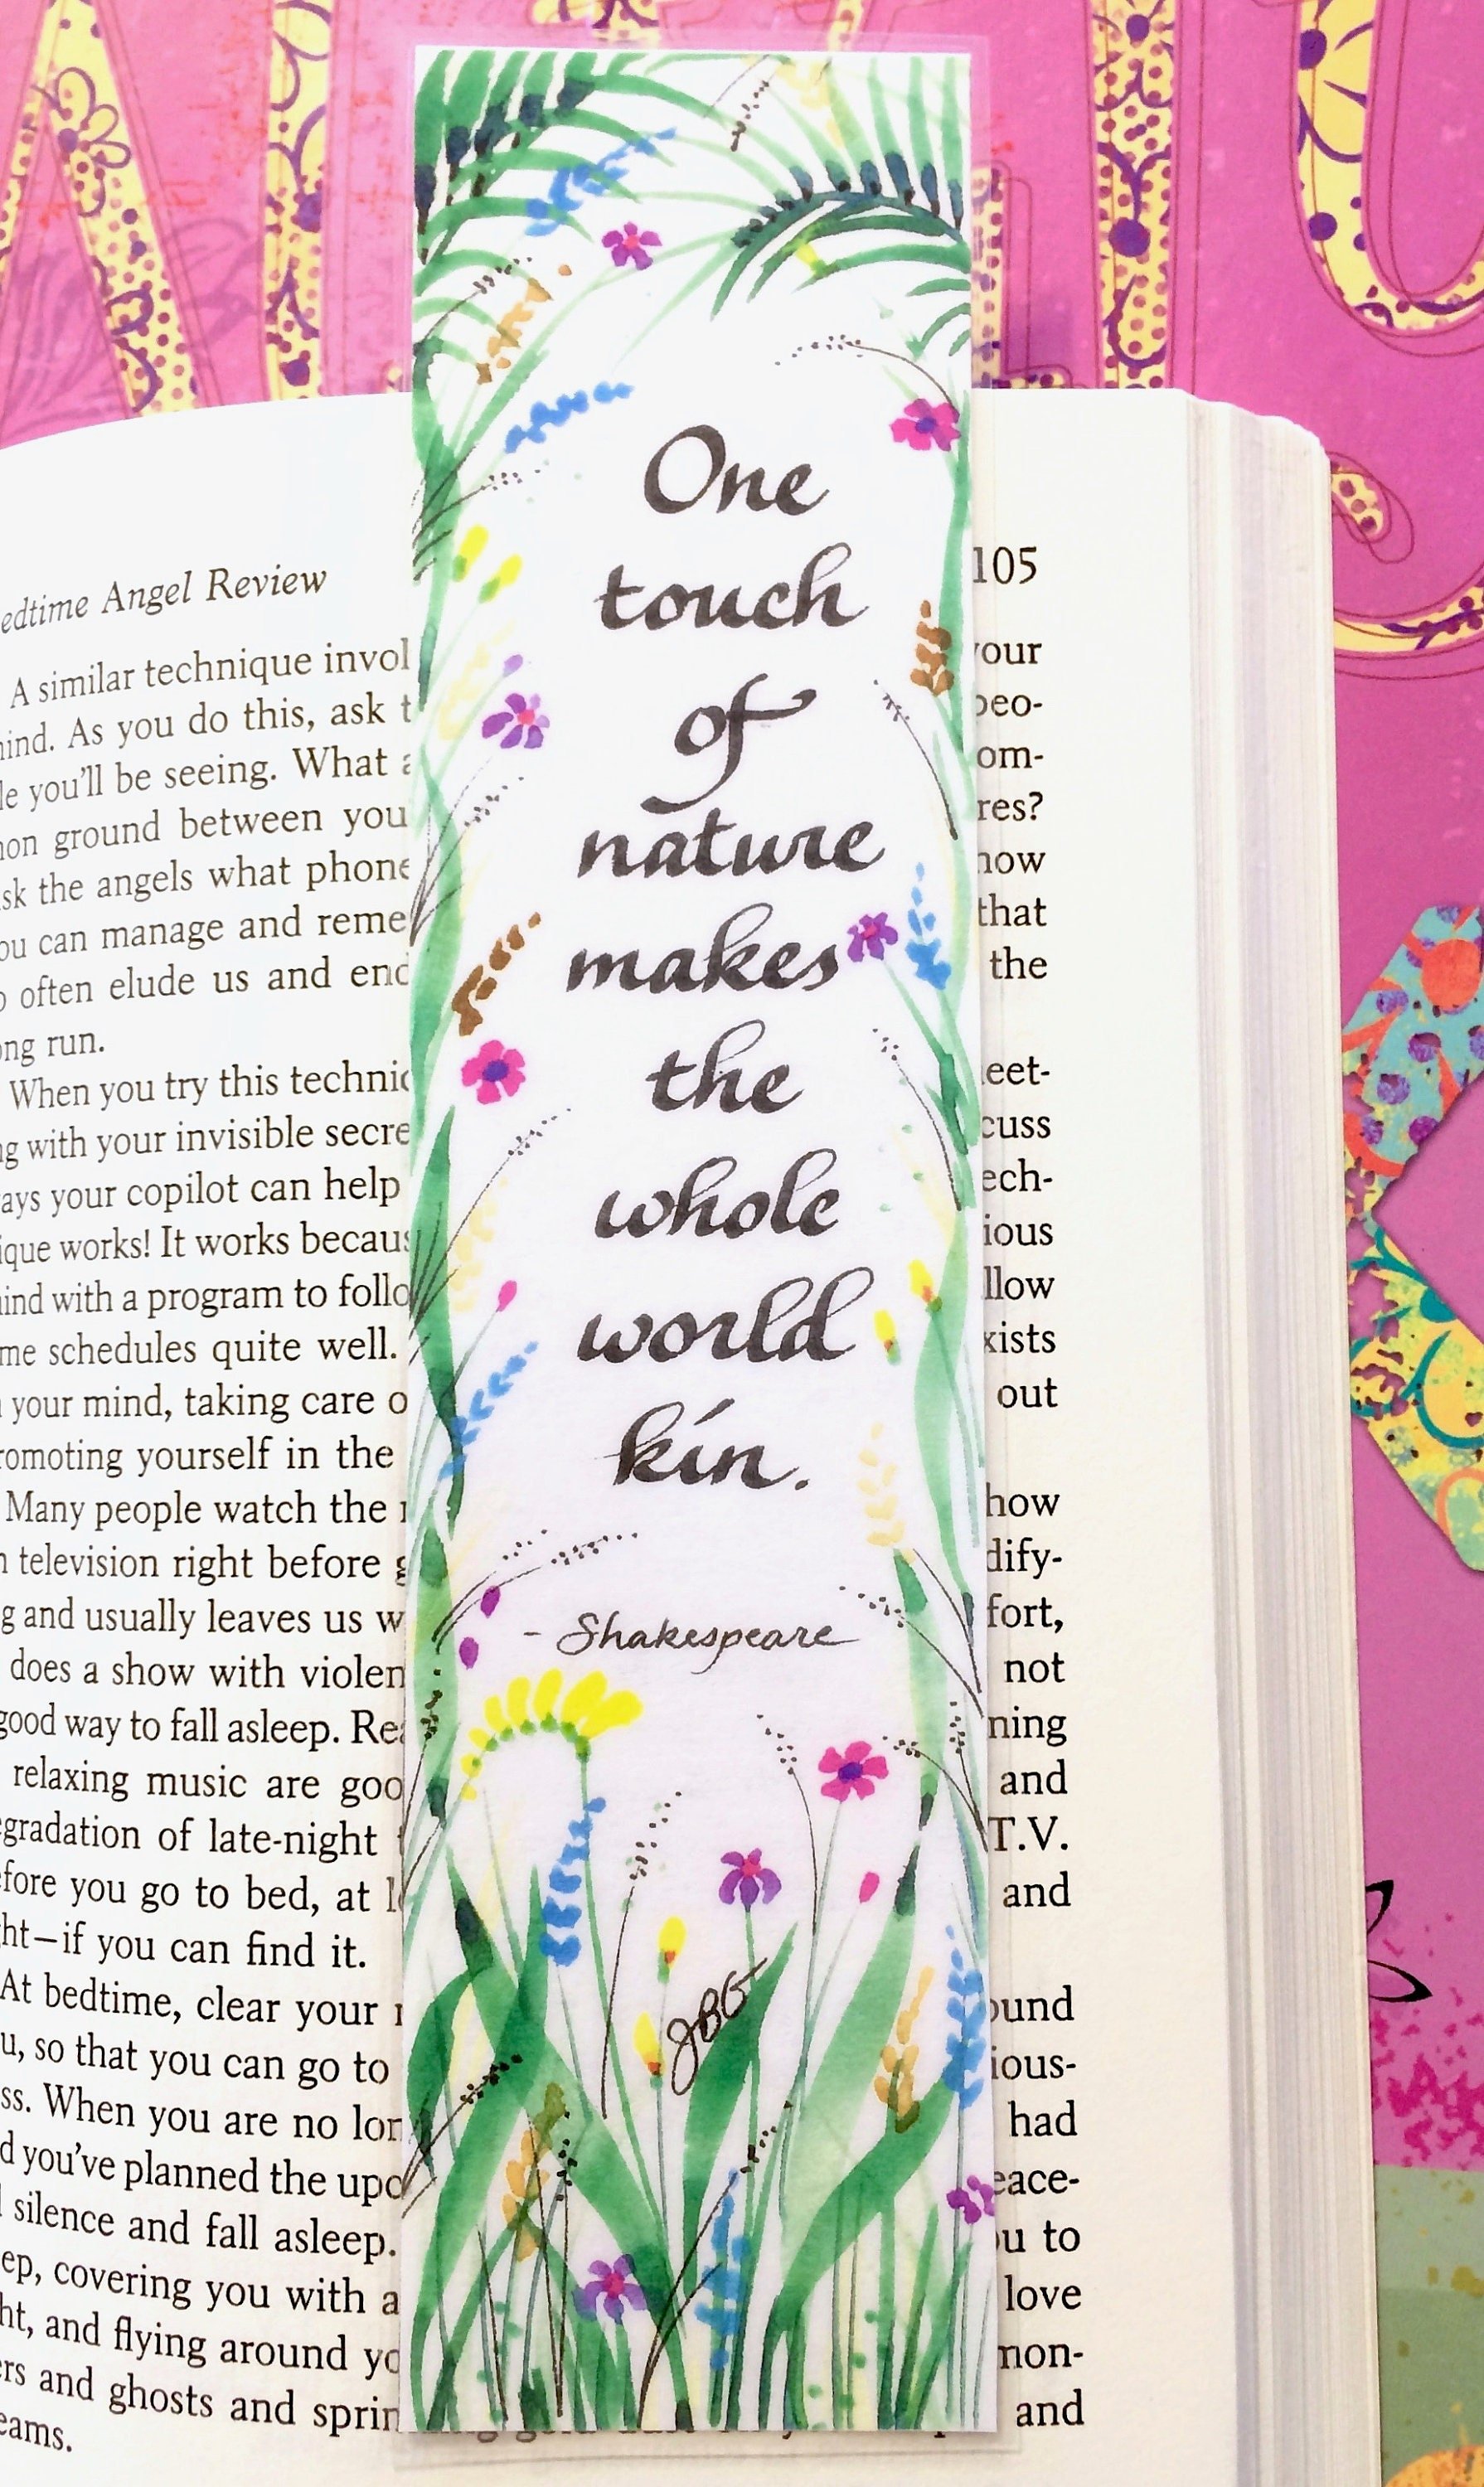 One
touch
of
nature
makes
the
whole
world
kin.
- Shakespeare
JBG
edtime Angel Review 105
A similar technique invol your
ind. As you do this, ask t peo-
le you'll be seeing. What om-
on ground between you res?
sk the angels what phone how
ou can manage and reme that
often elude us and end the
ong run.
When you try this technic eet-
g with your invisible secre cuss
ays your copilot can help ech-
ique works! It works becaus ious
ind with a program to follo llow
me schedules quite well. xists
your mind, taking care o out
romoting yourself in the
Many people watch the how
television right before g dify-
g and usually leaves us w fort,
does a show with violen not
good way to fall asleep. Rea ning
relaxing music are goo and
gradation of late-night T.V.
fore you go to bed, at l and
ht—if you can find it.
At bedtime, clear your ound
u, so that you can go to ious-
ss. When you are no lon had
d you've planned the upc eace-
silence and fall asleep. ou to
ep, covering you with a love
ht, and flying around yo mon-
rs and ghosts and sprin and
eams.